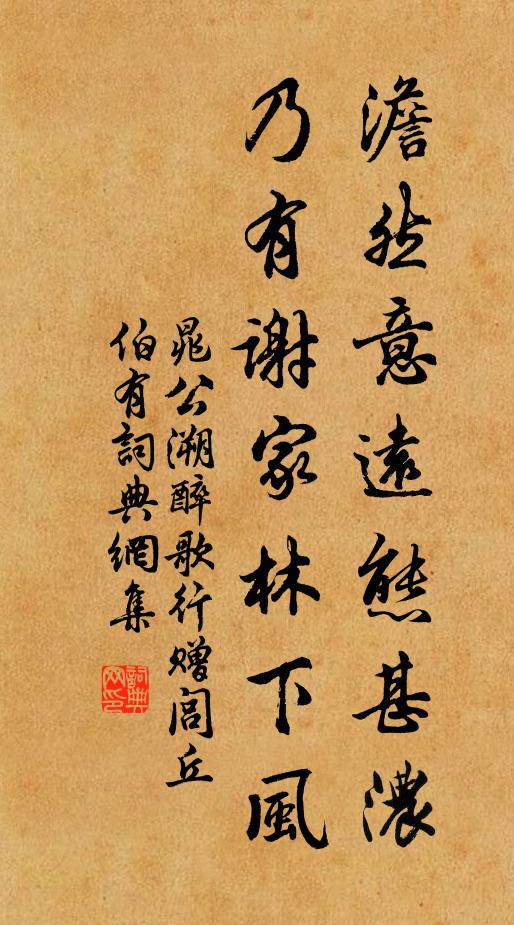 澹然意遠態甚濃
乃有謝家林下風
晁公溯醉歌行赠閭丘
伯有詞典網集
詞典网印